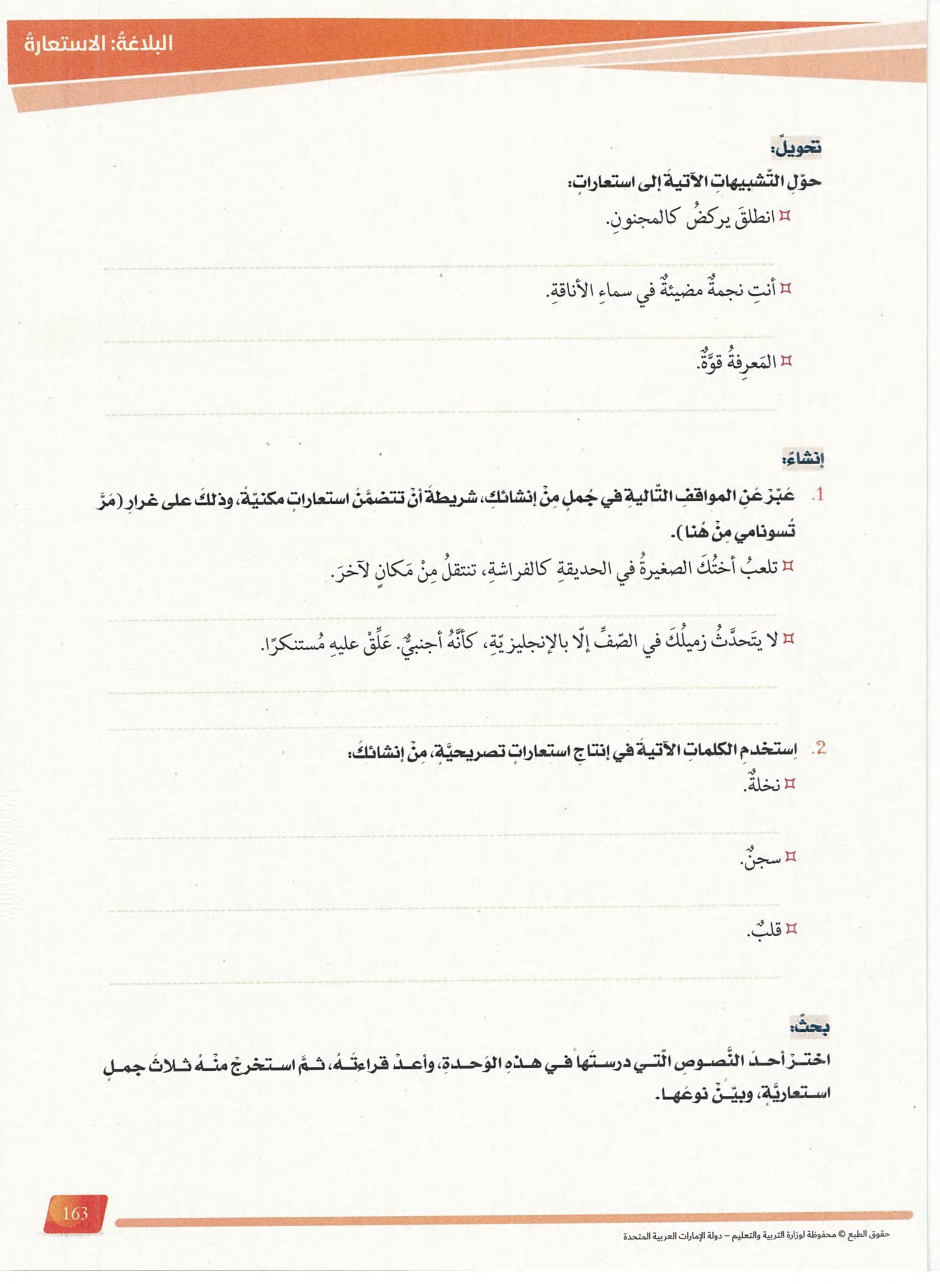 البلاغةُ: الاستعارةُ
تحويلٌ:
حوّلِ التّشبيهاتِ الآتيةَ إلى استعاراتٍ:
¤ انطلقَ يركضُ كالمجنونِ.
¤ أنتِ نجمةٌ مضيئةٌ في سماءِ الأناقةِ.
¤ المَعرِفةُ قوَّةٌ.
إنشاءٌ:
1. عَبّرْ عَنِ المواقفِ التّاليةِ في جُملٍ مِنْ إنشائكِ، شريطةَ أنْ تتضمَّنَ استعاراتٍ مكنيّةً، وذلكَ على غرارِ (مَرَّ
تُسونامي مِنْ هُنا).
¤ تلعبُ أختُكَ الصغيرةُ في الحديقةِ كالفراشةِ، تنتقلُ مِنْ مَكانٍ لآخرَ.
¤ لا يتَحدَّثُ زميلُكَ في الصّفِّ إلّا بالإنجليزيّةِ، كأنَّهُ أجنبيٌّ. عَلِّقْ عليهِ مُستنكرًا.
2. اِستخدمِ الكلماتِ الآتيةَ في إنتاجِ استعاراتٍ تصريحيَّةٍ، مِنْ إنشائكَ:
¤ نخلةٌ.
¤ سجنٌ.
¤ قلبٌ.
بحثٌ:
اختـرْ أحدَ النُّصوصِ الّتـي درستَها فـي هـذهِ الوَحـدةِ، وأعـدْ قراءتَـهُ، ثـمَّ استـخرجْ منْـهُ ثـلاثَ جمـلٍ
استـعاريَّةٍ، وبيّـنْ نوعَهـا.
163
حقوق الطبع © محفوظة لوزارة التربية والتعليم – دولة الإمارات العربية المتحدة